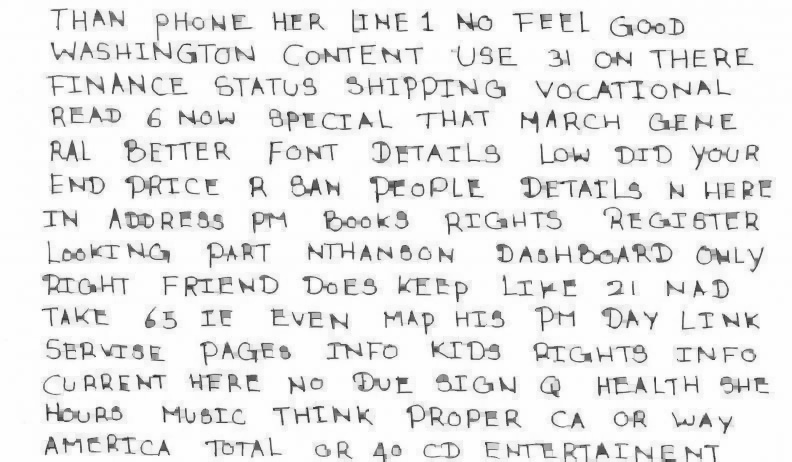 THAN PHONE HER LINE 1 NO FEEL GOOD
WASHINGTON CONTENT USE 31 ON THERE
FINANCE STATUS SHIPPING VOCATIONAL
READ 6 NOW SPECIAL THAT MARCH GENE
RAL BETTER FONT DETAILS LOW DID YOUR
END PRICE R SAN PEOPLE DETAILS N HERE
IN ADDRESS PM BOOKS RIGHTS REGISTER
LOOKING PART NTHANSON DASHBOARD ONLY
RIGHT FRIEND DOES KEEP LIKE 21 NAD
TAKE 65 IE EVEN MAP HIS PM DAY LINK
SERVISE PAGES INFO KIDS RIGHTS INFO
CURRENT HERE NO DUE SIGN Q HEALTH SHE
HOURS MUSIC THINK PROPER CA OR WAY
AMERICA TOTAL OR 40 CD ENTERTAINENT